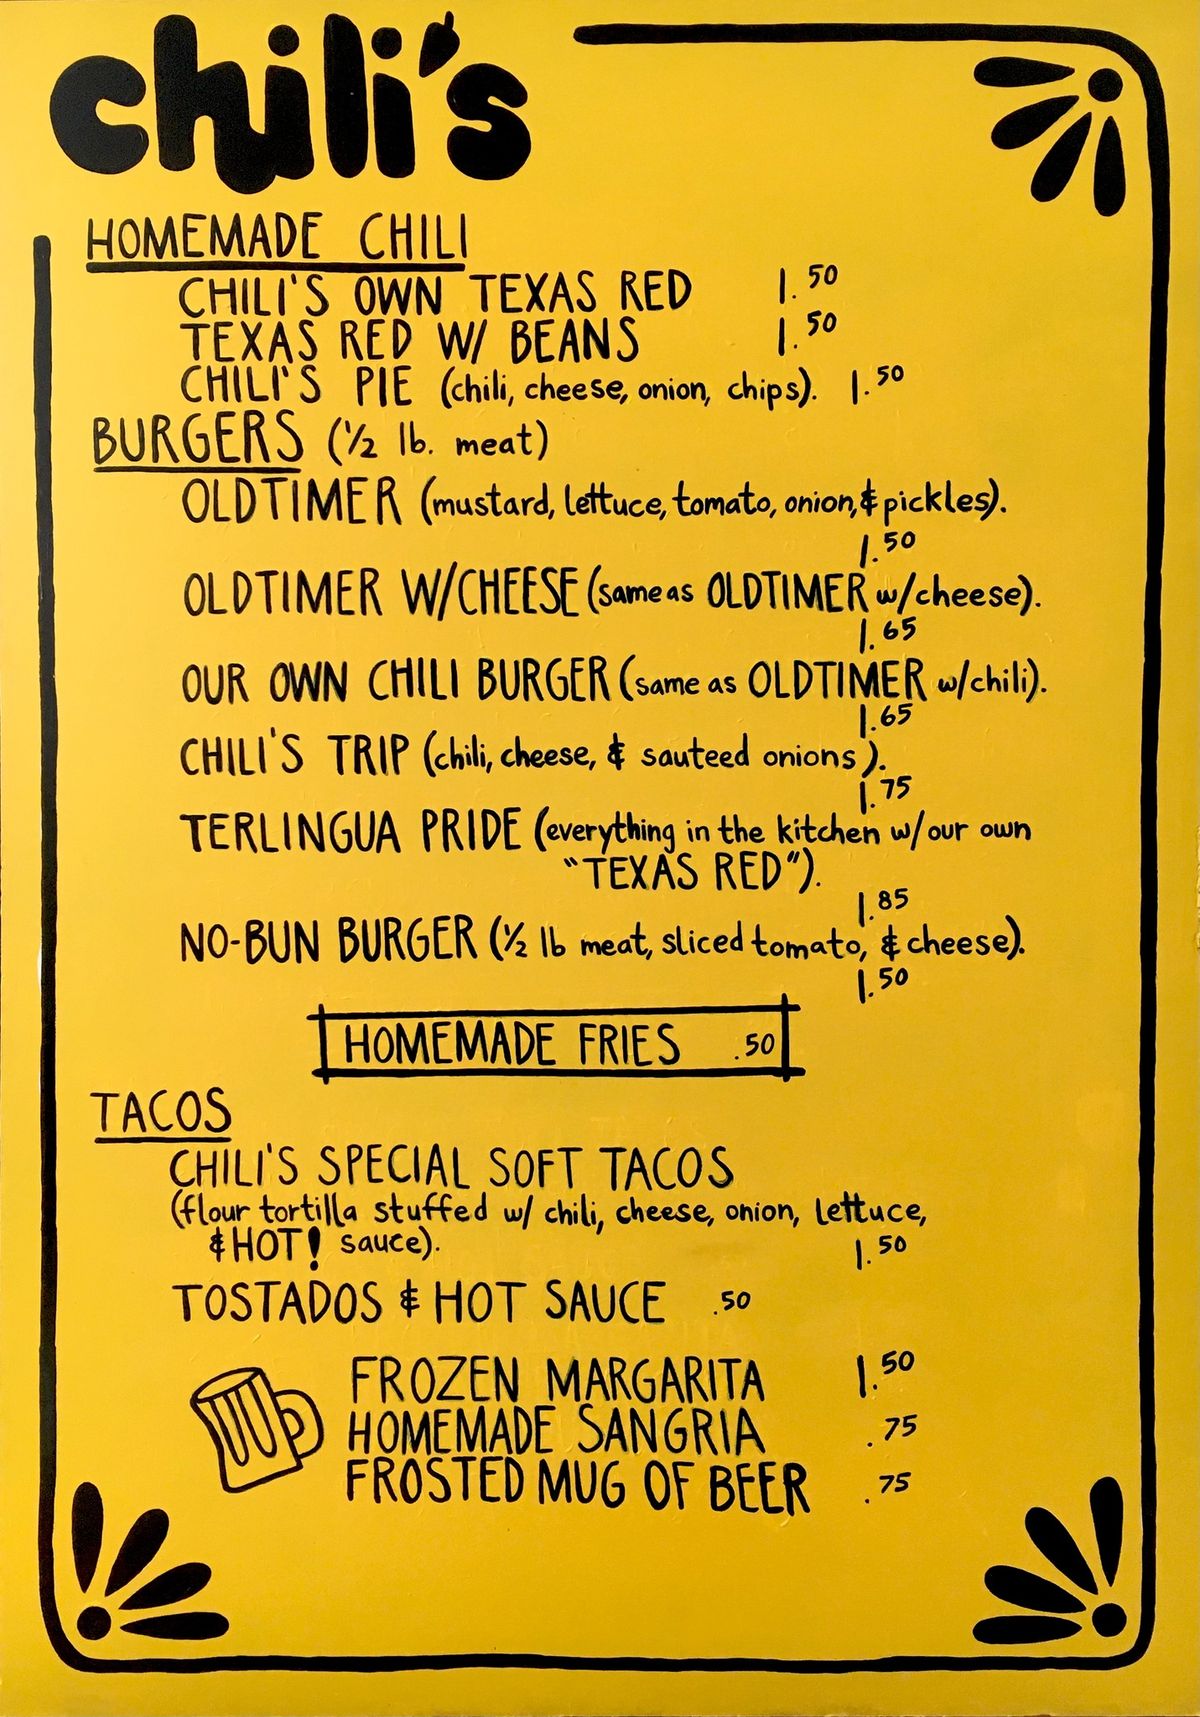 chili's
HOMEMADE CHILI
CHILI'S OWN TEXAS RED 1.50
TEXAS RED W/ BEANS 1.50
CHILI'S PIE (chili, cheese, onion, chips). 1.50
BURGERS (½ lb. meat)
OLDTIMER (mustard, lettuce, tomato, onion, & pickles).
1.50
OLDTIMER W/CHEESE (same as OLDTIMER w/cheese).
1.65
OUR OWN CHILI BURGER (same as OLDTIMER w/chili).
1.65
CHILI'S TRIP (chili, cheese, & sauteed onions).
1.75
TERLINGUA PRIDE (everything in the kitchen w/our own
"TEXAS RED").
1.85
NO-BUN BURGER (½ lb meat, sliced tomato, & cheese).
1.50
HOMEMADE FRIES .50
TACOS
CHILI'S SPECIAL SOFT TACOS
(flour tortilla stuffed w/ chili, cheese, onion, lettuce,
& HOT! sauce). 1.50
TOSTADOS & HOT SAUCE .50
FROZEN MARGARITA 1.50
HOMEMADE SANGRIA .75
FROSTED MUG OF BEER .75